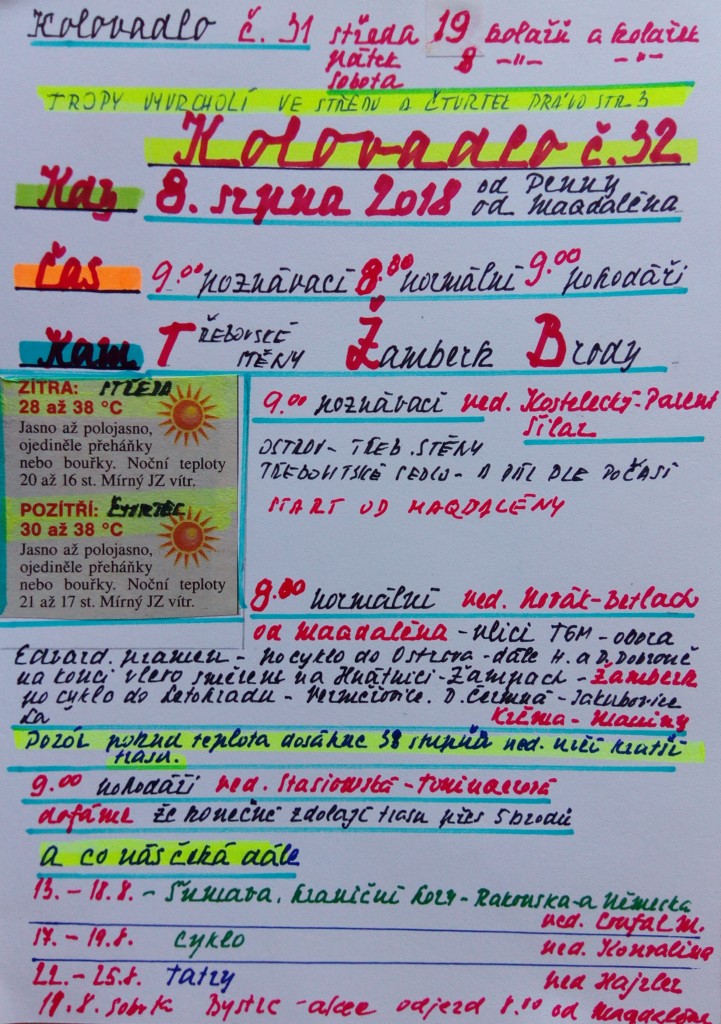 Kolovadlo č. 31 středa 19 kolařů a kolařek
pátek 8 -"- -"-
sobota
TROPY VYVRCHOLÍ VE STŘEDU A ČTVRTEK PRÁVO STR. 3
Kolovadlo č. 32
Kdy 8. srpna 2018 od Penny
od Magdaléna
Čas 9.00 poznávací 8.30 normální 9.00 pohodáři
Kam TŘEBOVSKÉ STĚNY Žamberk Brody
ZÍTRA: STŘEDA
28 až 38 °C
Jasno až polojasno,
ojediněle přeháňky
nebo bouřky. Noční teploty
20 až 16 st. Mírný JZ vítr.
POZÍTŘÍ: ČTVRTEK
30 až 38 °C
Jasno až polojasno,
ojediněle přeháňky
nebo bouřky. Noční teploty
21 až 17 st. Mírný JZ vítr.
9.00 poznávací ved. Kostelecký-
OSTROV - TŘEB. STĚNY
SEDLO - A DÁL DLE POČASÍ
START OD MAGDALÉNY
8.30 normální ved. Novák-
od Magdaléna - ulicí TGM - obora
Edvard. pramen - po cyklo do Ostrova - dále H. a D. Dobrouč
na konci vlevo směrem na Hnátnici - Žampach - Žamberk
po cyklo do Letohradu - Verměřovice. D. Čermná - Jakubovice
La
Pozor pokud teplota dosáhne 38 stupňů ved. určí kratší
trasu.
9.00 pohodáři ved. Stasiowská -
doufáme že konečně zdolají trasu přes 5 brodů
A co nás čeká dále
13. - 18.8. - Šumava, hraniční hory - Rakouska - a Německa
ved. Coufal M.
17. - 19.8. cyklo ved. Konvalina
22. - 25.8. Tatry ved Hajzler
sobota Bystřec - odjezd 8.30 od Magdalény